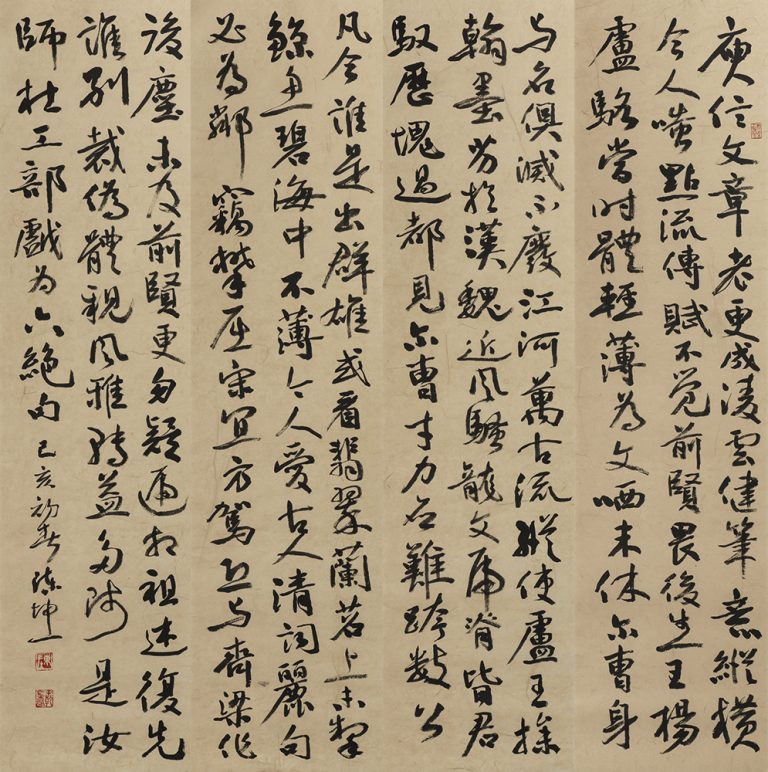 庾信文章老更成凌雲健筆意縱橫
今人嗤點流傳賦不觉前賢畏後生王楊
盧駱當时體輕薄為文哂未休尔曹身
与名俱滅不廢江河萬古流縱使盧王操
翰墨劣於漢魏近風騷龍文虎脊皆君
馭歷塊過都見尔曹才力应難跨數公
凡今誰是出群雄或看翡翠蘭苕上未掣
鯨魚碧海中不薄今人愛古人清詞麗句
必為鄰竊攀屈宋宜方駕恐与齊梁作
後塵未及前賢更勿疑遞相祖述復先
誰別裁偽體親風雅轉益多師是汝
師杜工部戲為六絕句己亥初春陳坤一